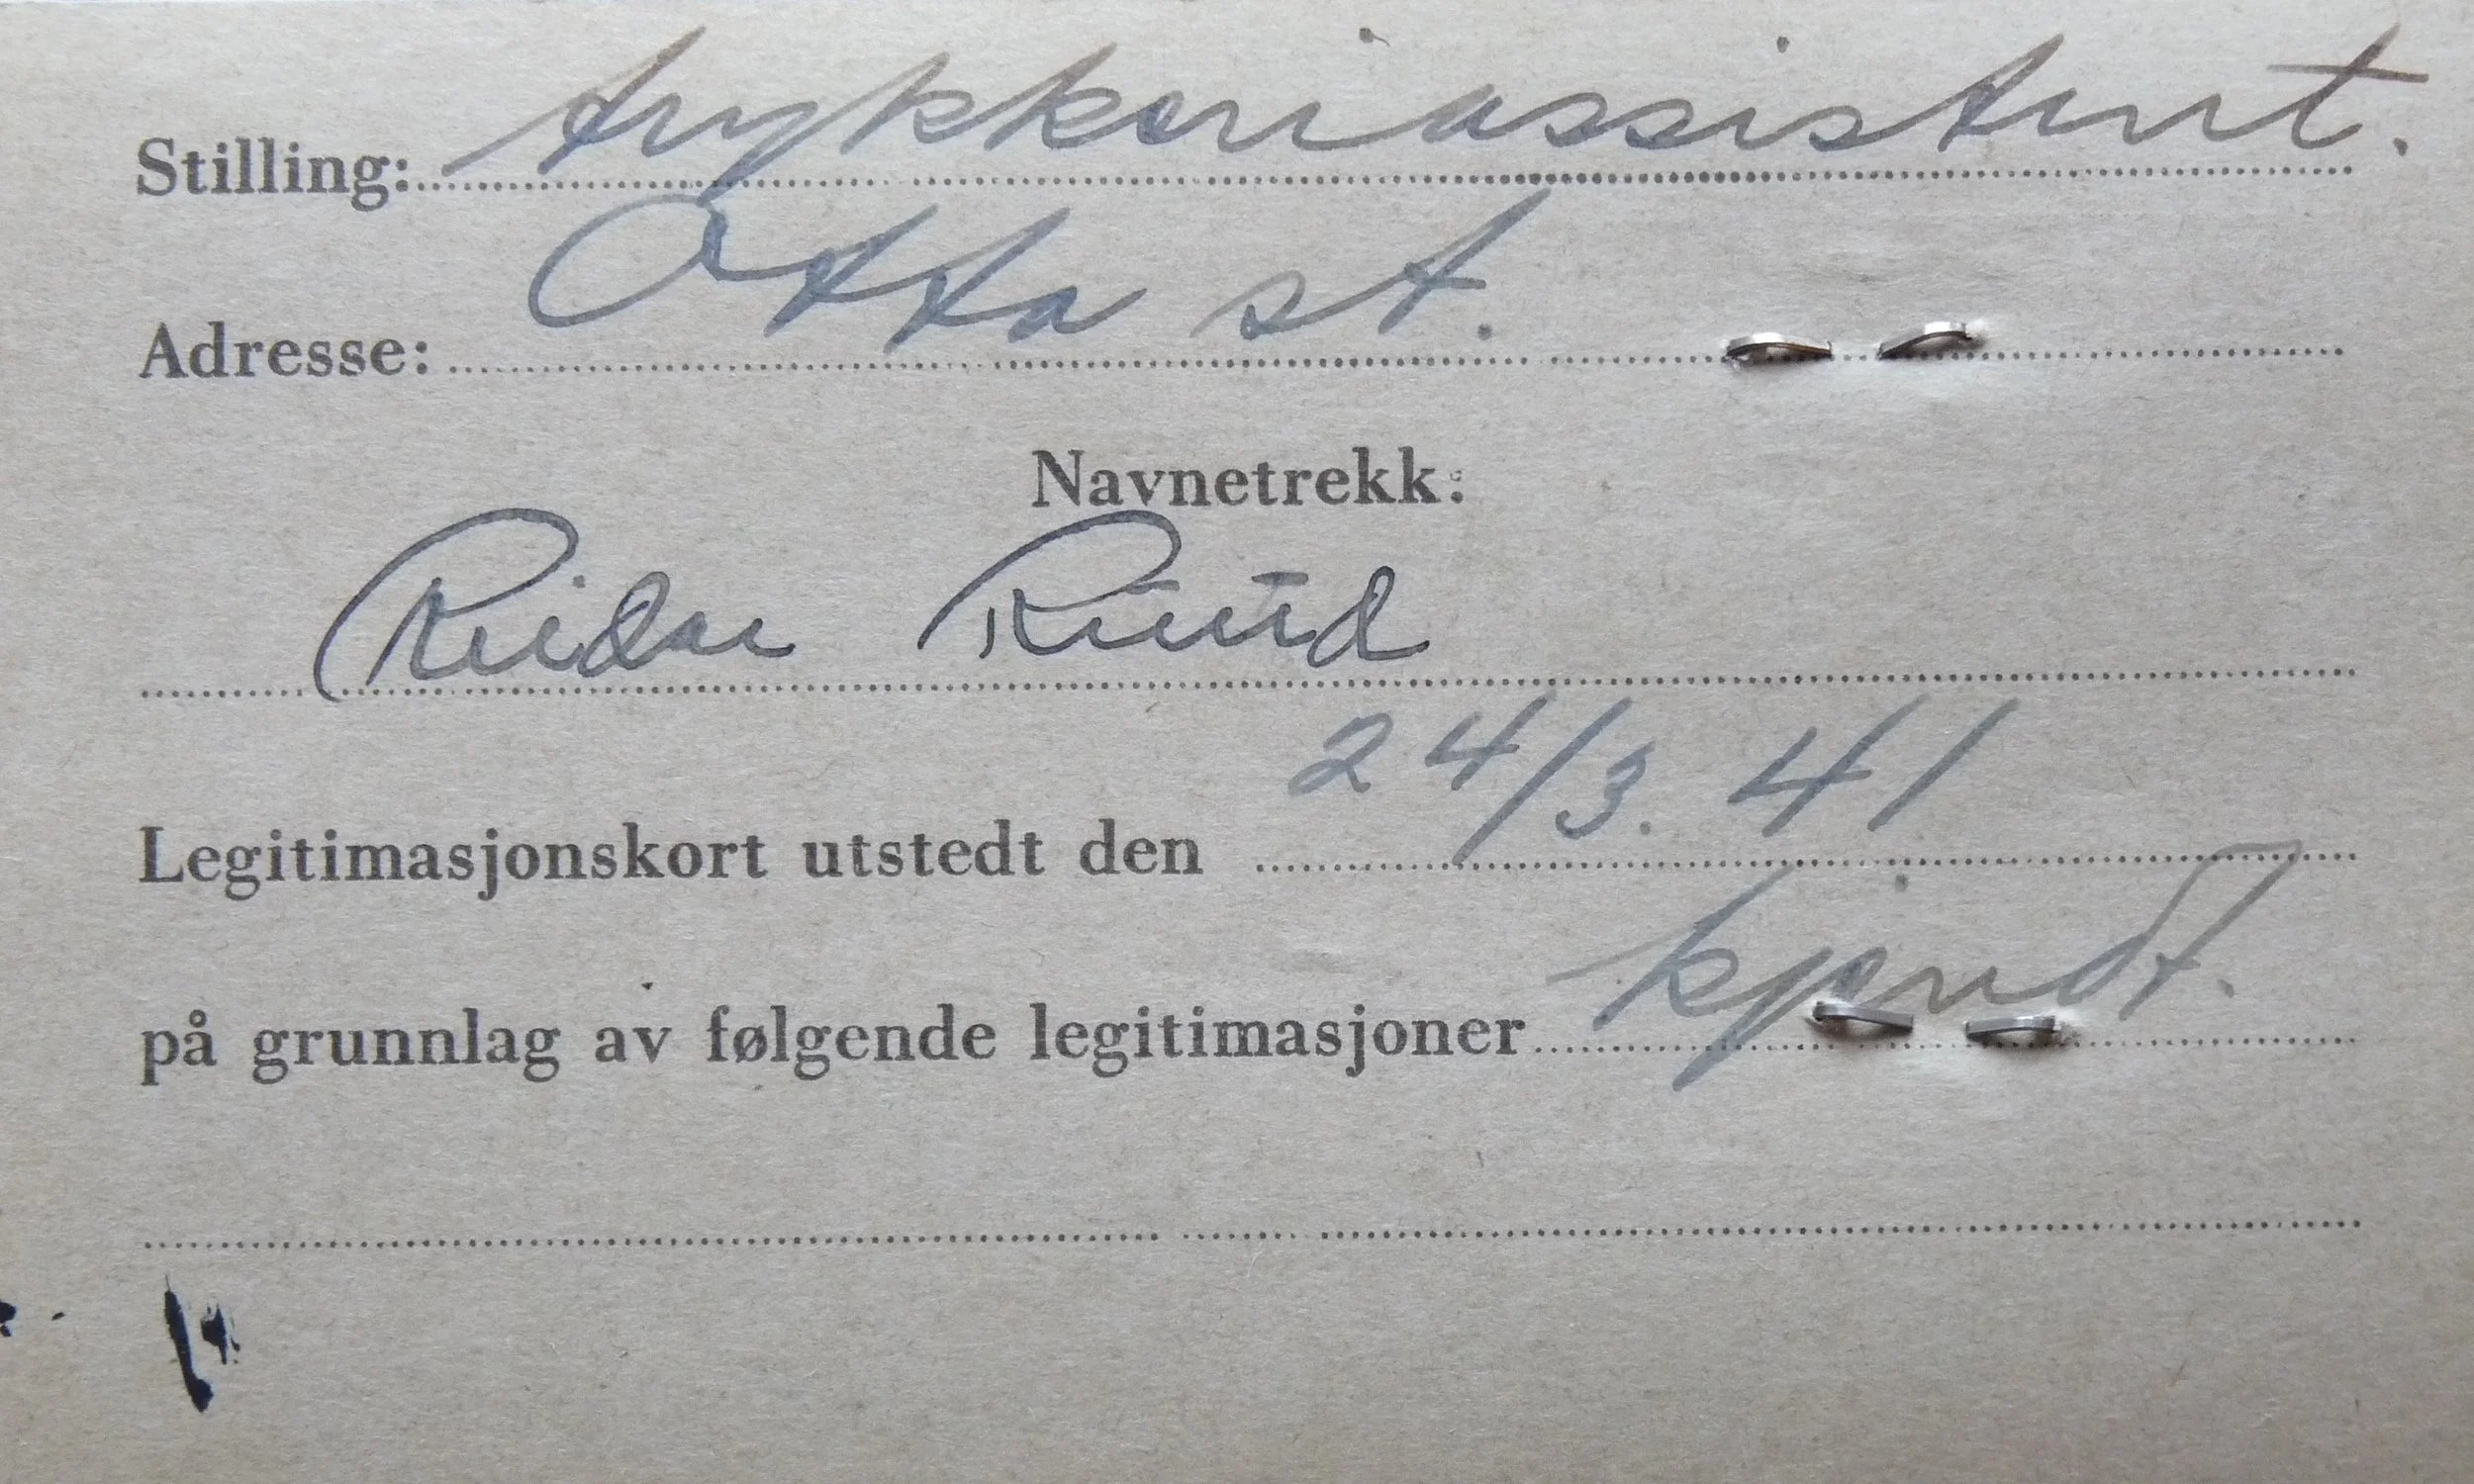 Stilling: trykkeriassistent.
Adresse: Otta st.
Navnetrekk:
Reidar Ruud
Legitimasjonskort utstedt den 24/3. 41
på grunnlag av følgende legitimasjoner kjendt.